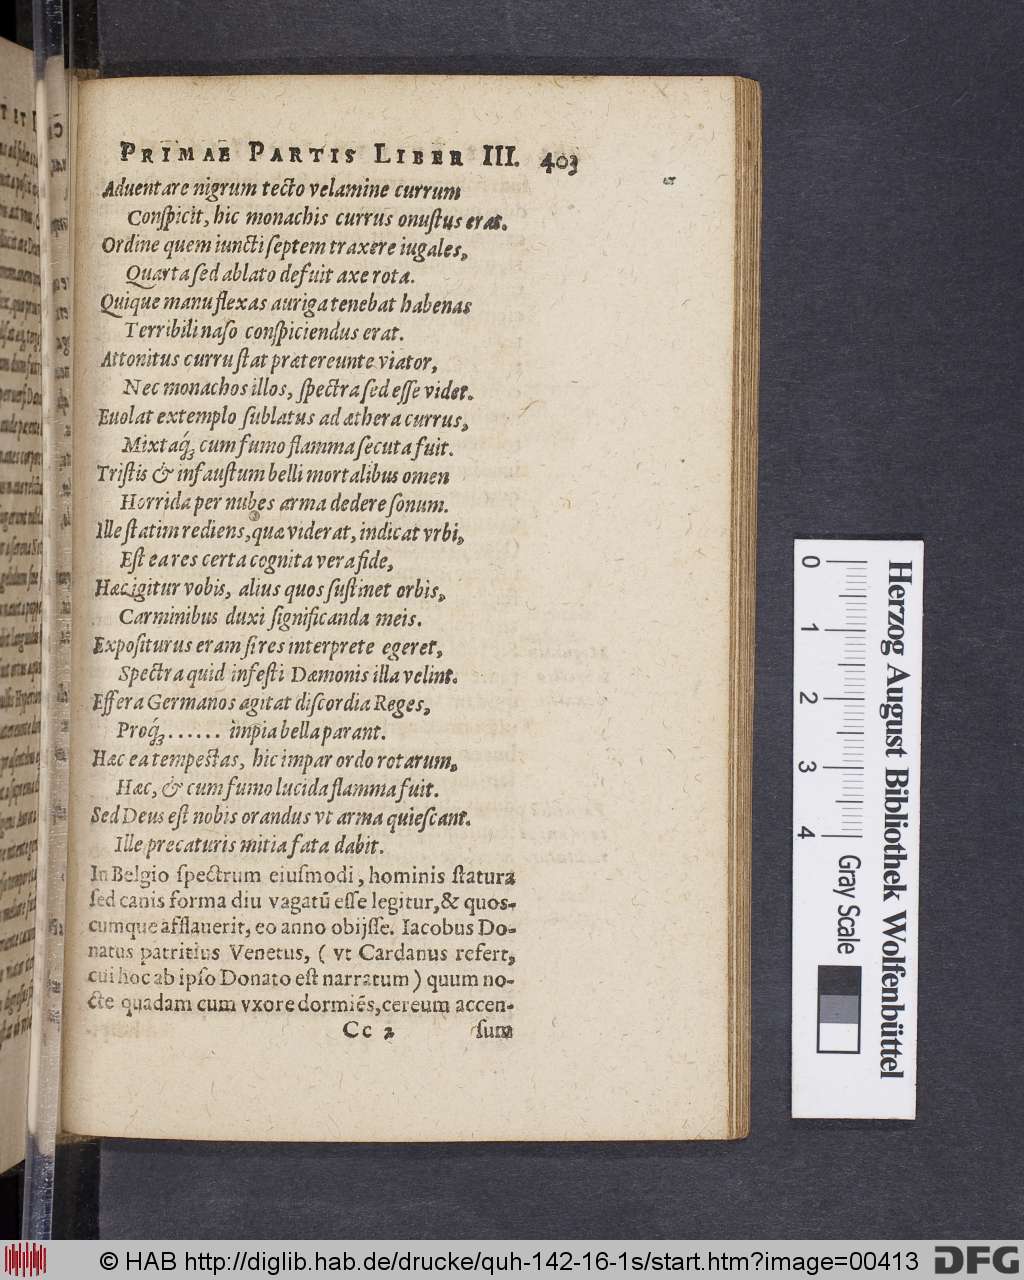 PRIMAE PARTIS LIBER III. 403
Aduentare nigrum tecto velamine currum
Conſpicit, hic monachis currus onuſtus erat.
Ordine quem iuncti ſeptem traxere iugales,
Quarta ſed ablato defuit axe rota.
Quique manu flexas auriga tenebat habenas
Terribili naſo conſpiciendus erat.
Attonitus curru ſtat prætereunte viator,
Nec monachos illos, ſpectra ſed eſſe videt.
Euolat extemplo ſublatus ad æthera currus,
Mixtaq́ꝫ cum fumo flamma ſecuta fuit.
Triſtis & infauſtum belli mortalibus omen
Horrida per nubes arma dedere ſonum.
Ille ſtatim rediens, quæ viderat, indicat vrbi,
Eſt ea res certa cognita vera fide,
Hæc igitur vobis, alius quos ſuſtinet orbis,
Carminibus duxi ſignificanda meis.
Expoſiturus eram ſi res interprete egeret,
Spectra quid infeſti Dæmonis illa velint.
Effera Germanos agitat diſcordia Reges,
Proq́ꝫ ...... impia bella parant.
Hæc ea tempeſtas, hic impar ordo rotarum,
Hæc, & cum fumo lucida flamma fuit.
Sed Deus eſt nobis orandus vt arma quieſcant.
Ille precaturis mitia fata dabit.
In Belgio ſpectrum eiuſmodi, hominis ſtatura
ſed canis forma diu vagatũ eſſe legitur, & quos-
cumque afflauerit, eo anno obijſſe. Iacobus Do-
natus patritius Venetus, ( vt Cardanus refert,
cui hoc ab ipſo Donato eſt narratum ) quum no-
cte quadam cum vxore dormiẽs, cereum accen-
Cc 2 ſum
0 1 2 3 4
Gray Scale
Herzog August Bibliothek Wolfenbüttel
© HAB http://diglib.hab.de/drucke/quh-142-16-1s/start.htm?image=00413
DFG